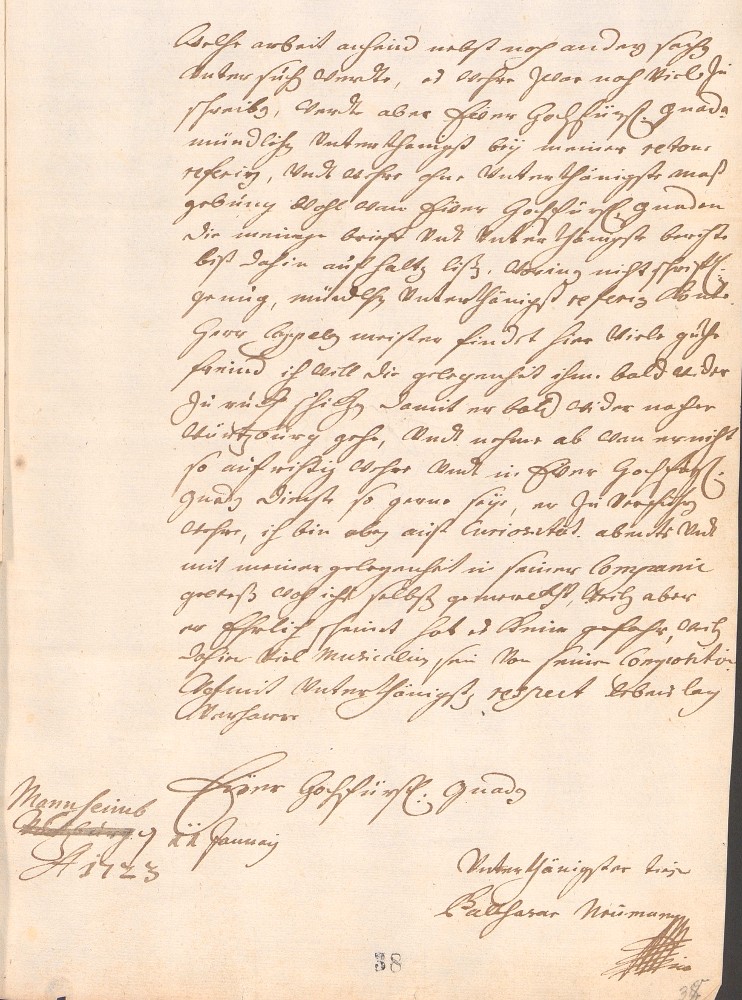 Welche arbeit anheind nebst noch andern sachen
Untersucht werdte, es wehre zwar noch Viel zu
schreiben, werdte aber Eüer Hochfürstl. gnaden
mündlich Unterthänigst beÿ meiner retour
referirn, Undt wehre ohne Unterthänigste maß
gebüng Wohl wan Eüer Hochfürstl. gnaden
die meinige brieff Undt Unterthänigste berichte
biß dahin auf halten lißen, nicht schrifftl.
genüg, mündlich Unterthänigst referirn könte.
Herr Cappelnmeister findet hier Viele guthe
freind ich will die gelegenheit ihme bald wider
zu rück schicken damit er bald wider nacher
Würtzburg gehe, Undt nehme ab wan er nicht
so aufrichtig wehre Undt in Eüer Hochfürstl.
gnaden Dienste so gerne seÿe, er zu
wehre, ich bin eben auß Curiositet abendts Undt
mit meiner gelegenheit in seiner Compagnie
geweß ich selbst gemerckht, weilen aber
er Ehrlich scheinet hat es keine gefahr, weilen
dahier Viel Musicalien sein Von seiner Composition
Womit Unterthänigsten respect lebens lang
Verharre
Eüer Hochfürstl. gnaden
Mannheimb
11 January
A 1723
Unterthänigster
Balthasar Neümann
38